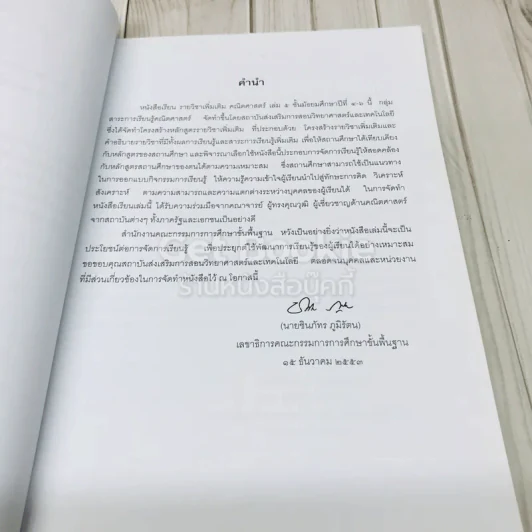 คำนำ
หนังสือเรียน รายวิชาเพิ่มเติม คณิตศาสตร์ เล่ม ๕ ชั้นมัธยมศึกษาปีที่ ๔-๖ นี้ กลุ่ม
สาระการเรียนรู้คณิตศาสตร์ จัดทำขึ้นโดยสถาบันส่งเสริมการสอนวิทยาศาสตร์และเทคโนโลยี
ซึ่งได้จัดทำโครงสร้างหลักสูตรรายวิชาเพิ่มเติม ที่ประกอบด้วย โครงสร้างรายวิชาเพิ่มเติมและ
คำอธิบายรายวิชาที่มีทั้งผลการเรียนรู้และสาระการเรียนรู้เพิ่มเติม เพื่อให้สถานศึกษาได้เทียบเคียง
กับหลักสูตรของสถานศึกษา และพิจารณาเลือกใช้หนังสือนี้ประกอบการจัดการเรียนรู้ให้สอดคล้อง
กับหลักสูตรสถานศึกษาของตนได้ตามความเหมาะสม ซึ่งสถานศึกษาสามารถใช้เป็นแนวทาง
ในการออกแบบกิจกรรมการเรียนรู้ ให้ความรู้ความเข้าใจผู้เรียนนำไปสู่ทักษะการคิด วิเคราะห์
สังเคราะห์ ตามความสามารถและความแตกต่างระหว่างบุคคลของผู้เรียนได้ ในการจัดทำ
หนังสือเรียนเล่มนี้ ได้รับความร่วมมือจากคณาจารย์ ผู้ทรงคุณวุฒิ ผู้เชี่ยวชาญด้านคณิตศาสตร์
จากสถาบันต่างๆ ทั้งภาครัฐและเอกชนเป็นอย่างดี
สำนักงานคณะกรรมการการศึกษาขั้นพื้นฐาน หวังเป็นอย่างยิ่งว่าหนังสือเล่มนี้จะเป็น
ประโยชน์ต่อการจัดการเรียนรู้ เพื่อประยุกต์ใช้พัฒนาการเรียนรู้ของผู้เรียนได้อย่างเหมาะสม
ขอขอบคุณสถาบันส่งเสริมการสอนวิทยาศาสตร์และเทคโนโลยี ตลอดจนบุคคลและหน่วยงาน
ที่มีส่วนเกี่ยวข้องในการจัดทำหนังสือไว้ ณ โอกาสนี้
ร้านหนังสือบุ๊คกี้
(นายชินภัทร ภูมิรัตน)
เลขาธิการคณะกรรมการการศึกษาขั้นพื้นฐาน
๑๕ ธันวาคม ๒๕๕๓